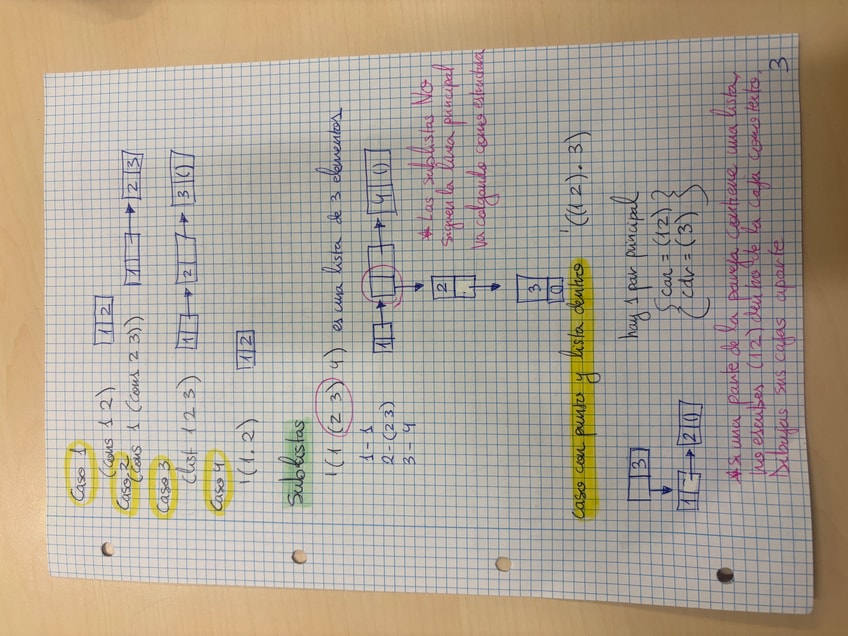 Caso 1
(cons 1 2)
1 2
Caso 2
(cons 1 (cons 2 3))
1 2 3
Caso 3
(list 1 2 3)
1 2 3 ()
Caso 4
'(1.2)
1 2
Sublistas
'(1 (2 3) 4) es una lista de 3 elementos
1 - 1
2 - (2 3)
3 - 4
1 4 ()
2
3
()
* Las sublistas NO
siguen la línea principal
va colgando como estructura
Caso con punto y lista dentro
'((1 2) . 3)
hay 1 par principal
{ car = (1 2) }
{ cdr = (3) }
3
1 2 ()
* Si una parte de la pareja contiene una lista,
no escribes (1 2) dentro de la caja como texto.
Dibujas sus cajas aparte
3